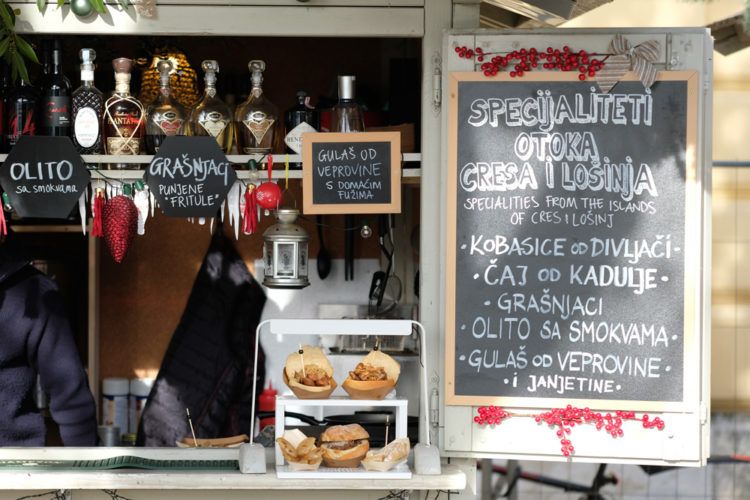 OLITO
sa SMOKVAMA
GRAŠNJACI
PUNJENE
"FRITULE"
GULAŠ OD
VEPROVINE
S DOMAĆIM
FUŽIMA
SPECIJALITETI
OTOKA
CRESA I LOŠINJA
SPECIALITIES FROM THE ISLANDS
OF CRES I LOŠINJ
• KOBASICE OD DIVLJAČI •
• ČAJ OD KADULJE •
• GRAŠNJACI
• OLITO SA SMOKVAMA •
• GULAŠ OD VEPROVINE •
• i JANJETINE •